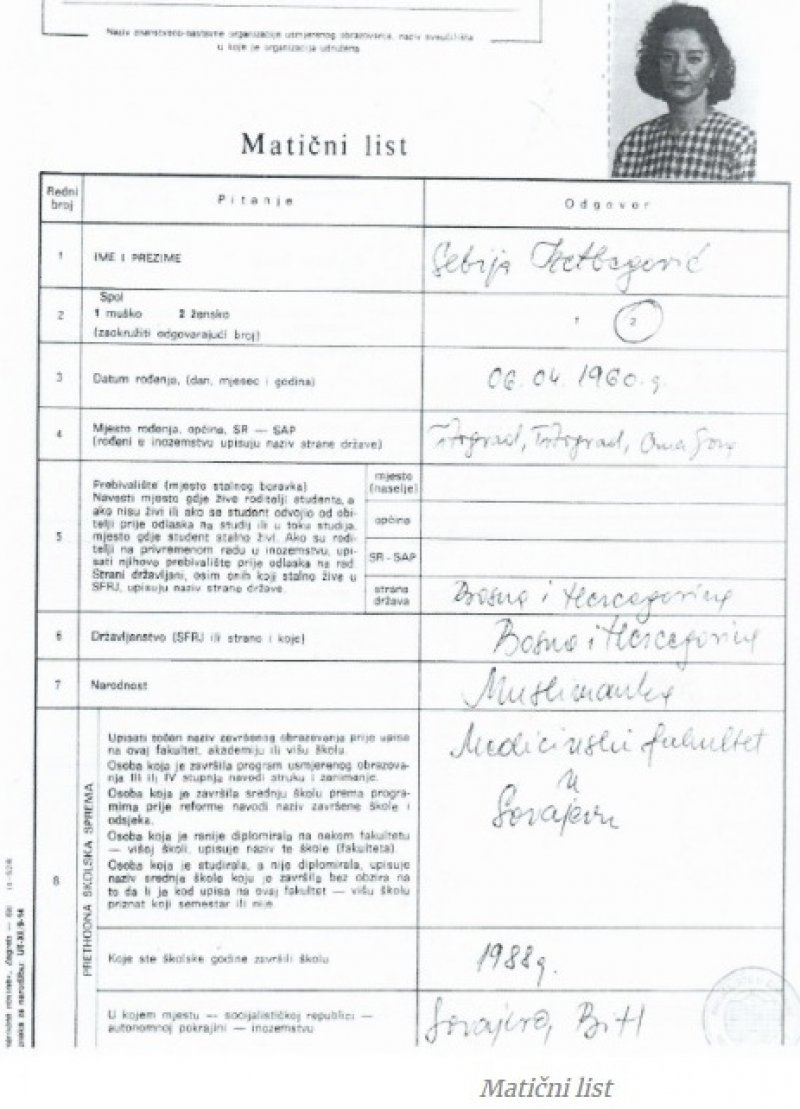 Naziv znanstveno-nastavne organizacije usmjerenog obrazovanja, naziv sveučilišta
u koje je organizacija udružena
Matični list
Redni
broj
Pitanje
Odgovor
1
IME I PREZIME
Sebija Izetbegović
2
Spol
1 muško 2 žensko
(zaokružiti odgovarajući broj)
1 2
3
Datum rođenja, (dan, mjesec i godina)
06. 04. 1960. g.
4
Mjesto rođenja, općina, SR — SAP
(rođeni u inozemstvu upisuju naziv strane države)
Titograd, Titograd, Crna Gora
5
Prebivalište (mjesto stalnog boravka)
Navesti mjesto gdje žive roditelji studenta, a
ako nisu živi ili ako se student odvojio od obi-
telji prije odlaska na studij ili u toku studija,
mjesto gdje student stalno živi. Ako su rodi-
telji na privremenom radu u inozemstvu, upi-
sati njihovo prebivalište prije odlaska na rad.
Strani državljani, osim onih koji stalno žive u
SFRJ, upisuju naziv strane države.
mjesto
(naselje)
općina
SR - SAP
strana
država
Bosna i Hercegovina
6
Državljanstvo (SFRJ ili strano i koje)
Bosna i Hercegovina
7
Narodnost
Muslimanka
8
PRETHODNA ŠKOLSKA SPREMA
Upisati točan naziv završenog obrazovanja prije upisa
na ovaj fakultet, akademiju ili višu školu.
Osoba koja je završila program usmjerenog obrazova-
nja III ili IV stupnja navodi struku i zanimanje.
Osoba koja je završila srednju školu prema progra-
mima prije reforme navodi naziv završene škole i
odsjeka.
Osoba koja je ranije diplomirala na nekom fakultetu
— višoj školi, upisuje naziv te škole (fakulteta)
Osoba koja je studirala, a nije diplomirala, upisuje
naziv srednje škole koju je završila bez obzira na
to da li je kod upisa na ovaj fakultet — višu školu
priznat koji semestar ili nije
Medicinski fakultet
u
Sarajevu
Koje ste školske godine završili školu
1988 g.
U kojem mjestu — socijalističkoj republici —
autonomnoj pokrajini — inozemstvu
Sarajevo, BiH
Matični list